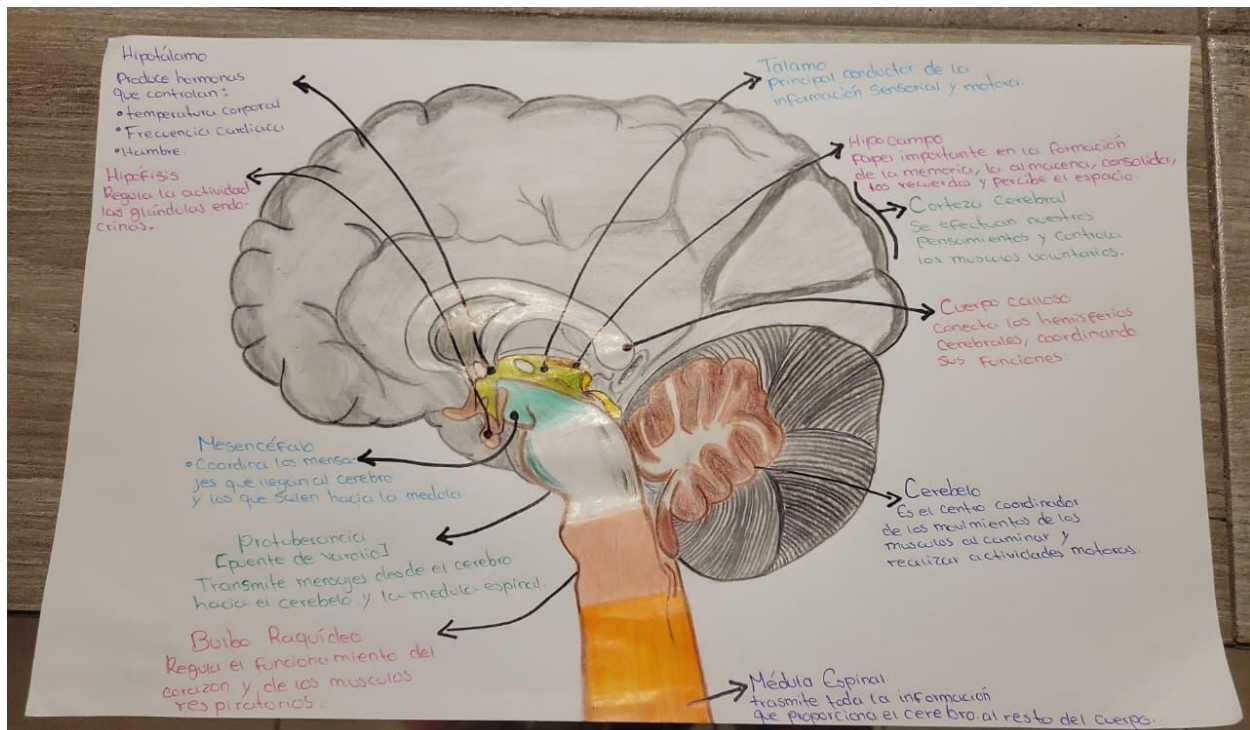 Hipotálamo
Produce hormonas
que controlan:
• temperatura corporal
• Frecuencia cardiaca
• Hambre.
Hipofisis
Regula la actividad
las glándulas endo-
crinas.
Talamo
principal conductor de la
información sensorial y motora.
Hipocampo
Papel importante en la formación
de la memoria, la almacena, consolida,
los recuerdos y percibe el espacio.
Corteza cerebral
Se efectuan nuestros
Pensamientos y controla
los musculos voluntarios.
Cuerpo calloso
conecta los hemisferios
cerebrales, coordinando
sus funciones
Mesencéfalo
• Coordina los mensa-
jes que llegan al cerebro
y los que salen hacia la medula.
Protuberancia
[puente de varolio]
Transmite mensajes desde el cerebro
hacia el cerebelo y la medula espinal.
Bulbo Raquídeo
Regula el funcionamiento del
corazon y de los musculos
respiratorios.
Cerebelo
Es el centro coordinador
de los movimientos de los
musculos al caminar y
realizar actividades motoras.
Médula Espinal.
trasmite toda la información
que proporciona el cerebro al resto del cuerpo.